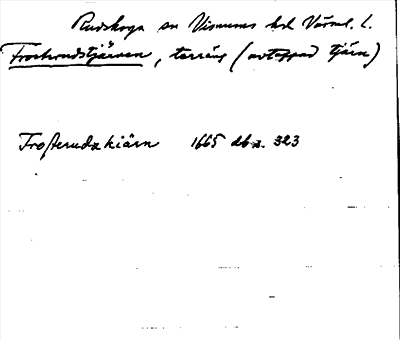 Rudskoga sn Visnums hd Värml. l.
Frosterudstjärnen, terräng (avtappad tjärn)
Frosterudz kiärn 1665 dbr. 323